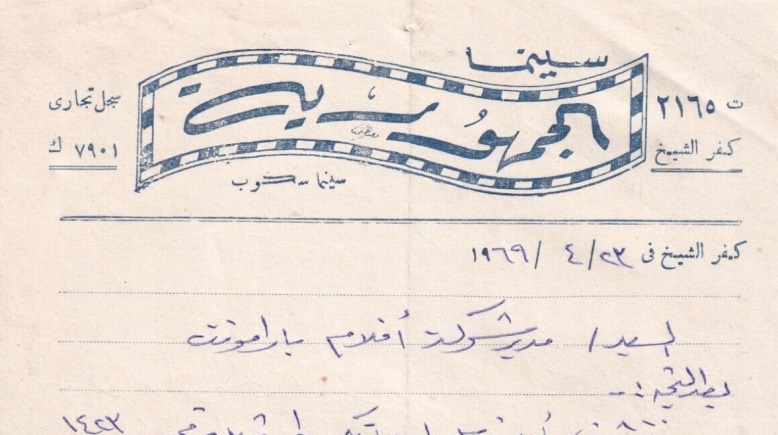 سينما
الجمهورية
سينما سكوب
ت ٢١٦٥
كفر الشيخ
سجل تجارى
٧٩٠١ ك
كفر الشيخ فى ٢٣/ ٤ / ١٩٦٩
السيد / مدير شركة أفلام بارامونت
بعد التحية :-
١٤٢٣